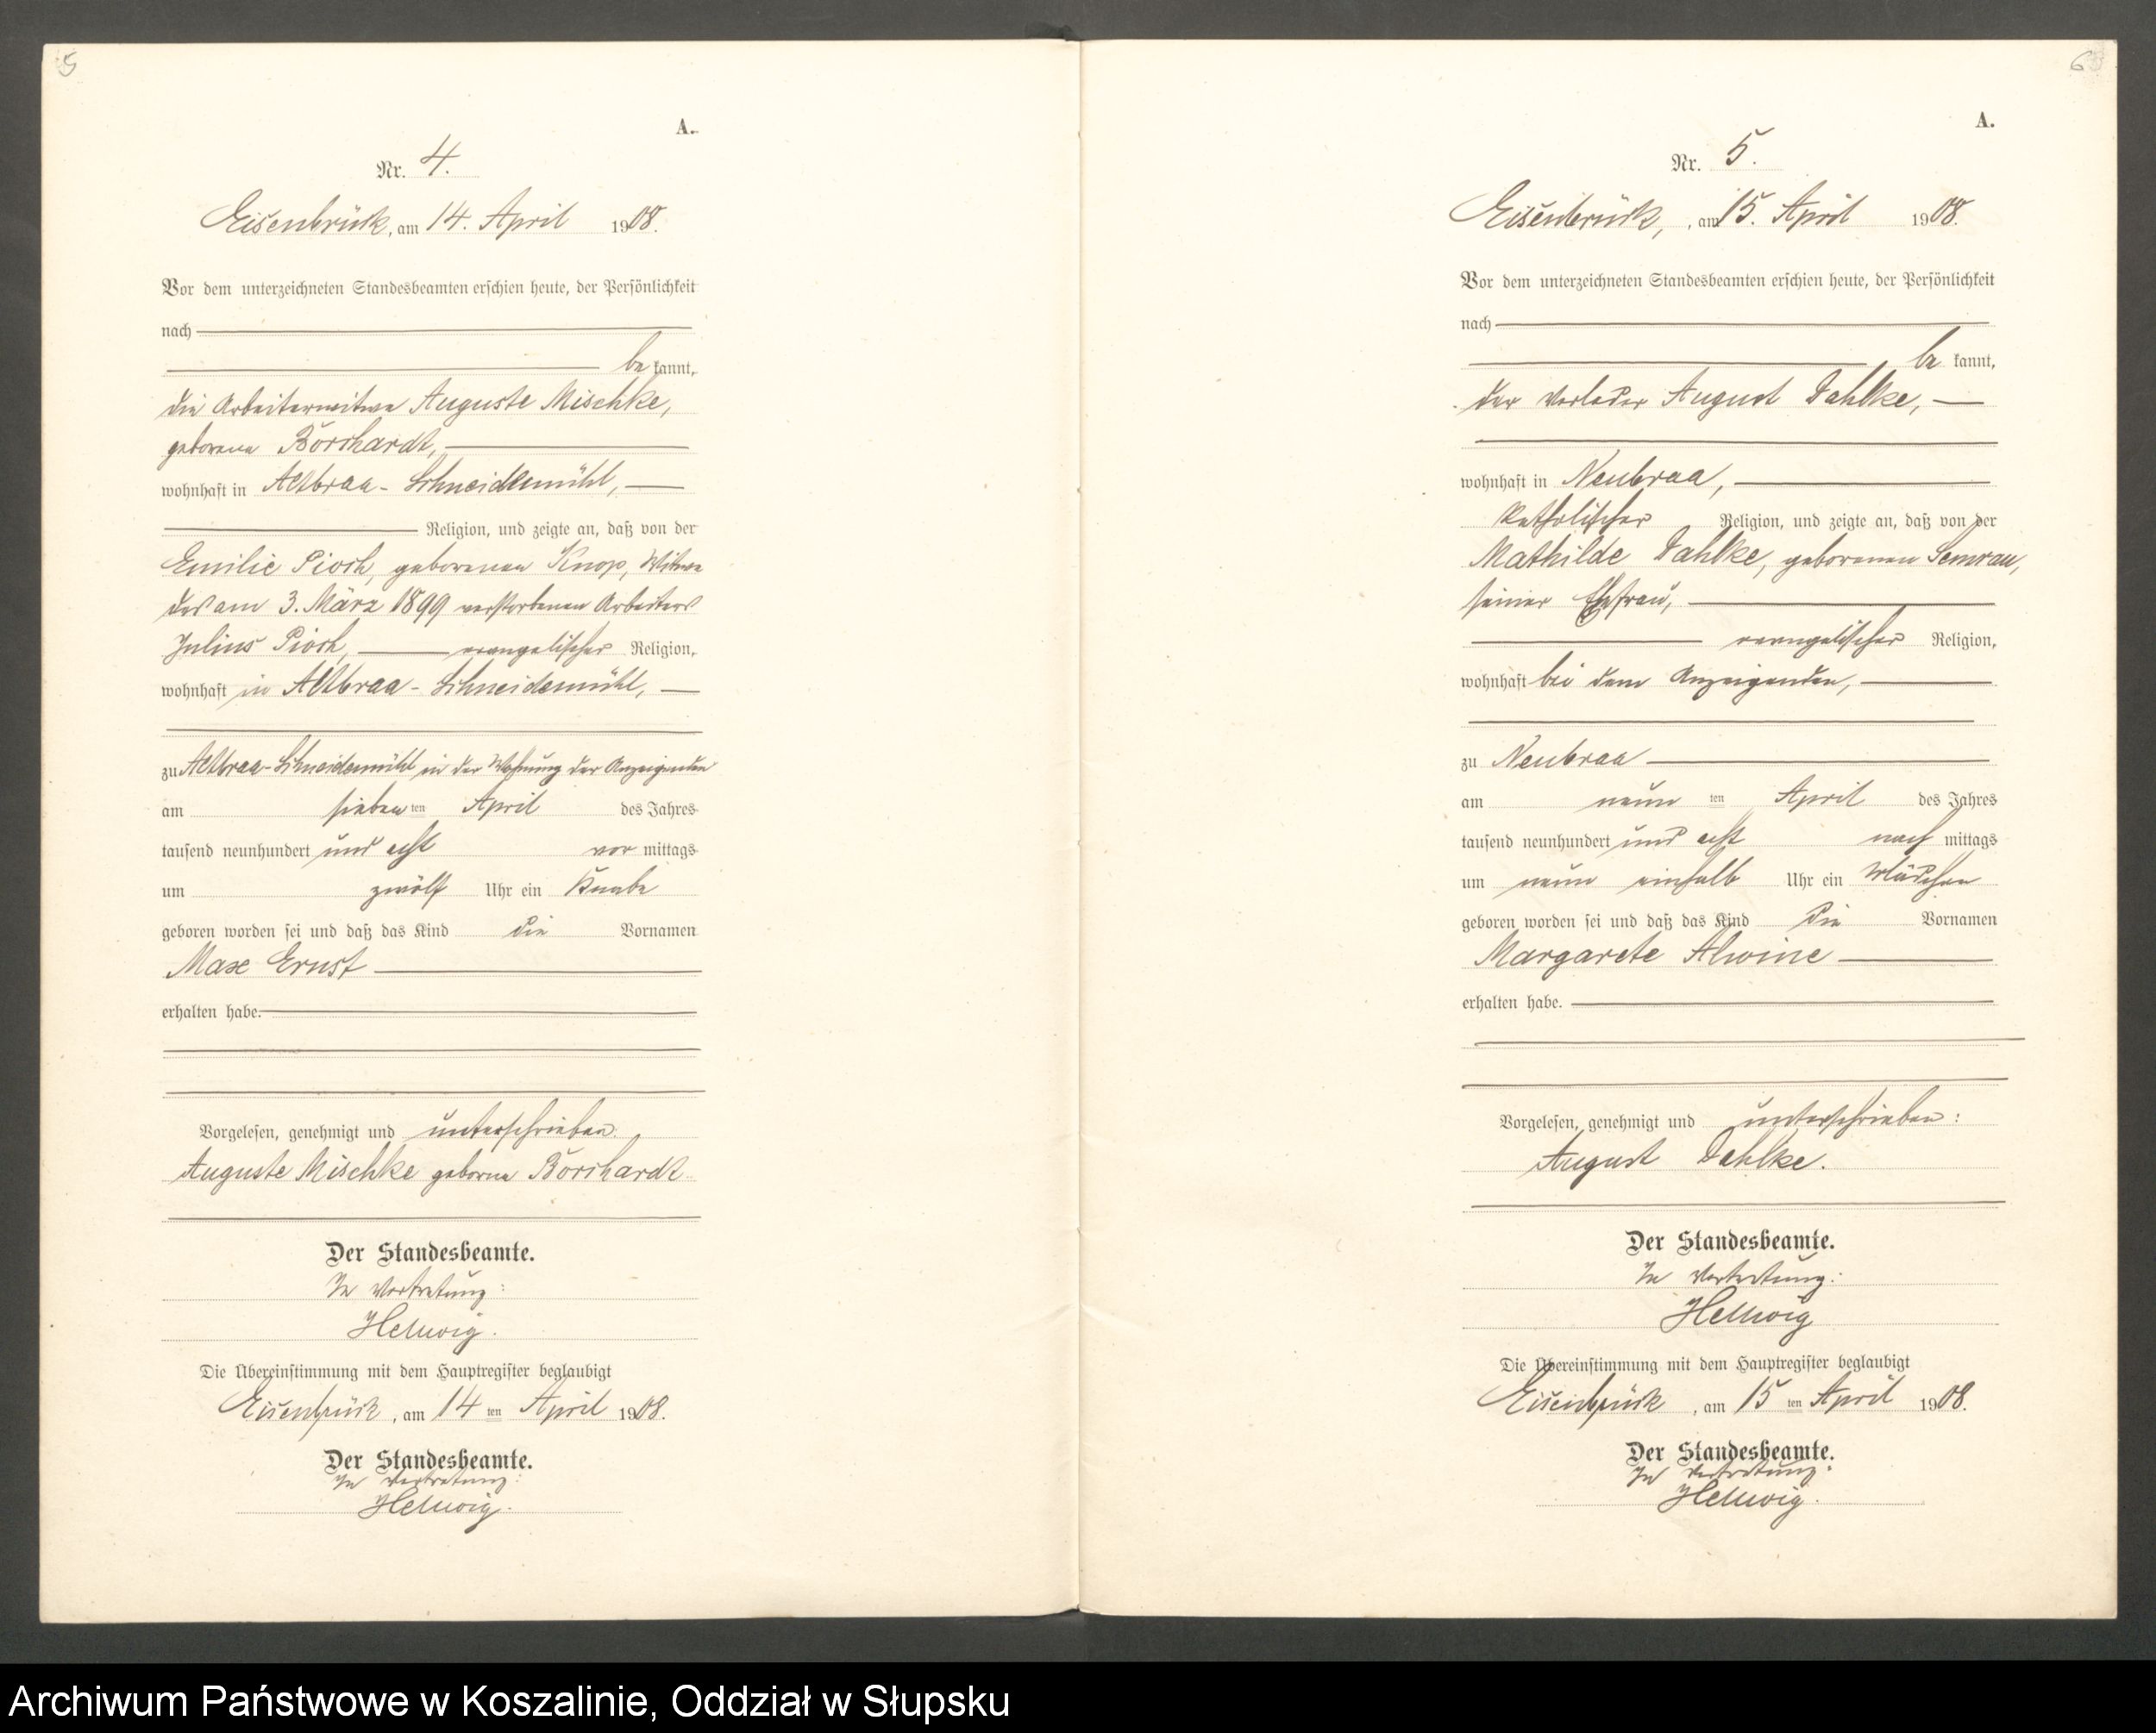 5
A.
Nr. 4.
Eisenbrück, am 14. April 1908.
Vor dem unterzeichneten Standesbeamten erschien heute, der Persönlichkeit
nach
be kannt,
die Arbeiterwitwe Auguste Mischke,
geborene Borchardt,
wohnhaft in Altbraa-Schneidemühl,
Religion, und zeigte an, daß von der
Emilie Pioch, geborenen Knop, Witwe
des am 3. März 1899 verstorbenen Arbeiters
Julius Pioch, evangelischer Religion,
wohnhaft in Altbraa-Schneidemühl,
zu Altbraa-Schneidemühl in der Wohnung der Anzeigenden
am sieben ten April des Jahres
tausend neunhundert und acht vor mittags
um zwölf Uhr ein Knabe
geboren worden sei und daß das Kind die Vornamen
Max Ernst
erhalten habe.
Vorgelesen, genehmigt und unterschrieben:
Auguste Mischke geborne Borchardt
Der Standesbeamte.
In Vertretung:
Hellwig.
Die Übereinstimmung mit dem Hauptregister beglaubigt
Eisenbrück, am 14 ten April 1908.
Der Standesbeamte.
In Vertretung:
Hellwig.
6
A.
Nr. 5.
Eisenbrück, , am 15. April 1908.
Vor dem unterzeichneten Standesbeamten erschien heute, der Persönlichkeit
nach
be kannt,
der Verlader August Dahlke,
wohnhaft in Neubraa,
katholischer Religion, und zeigte an, daß von der
Mathilde Dahlke, geborenen Semrau,
seiner Ehefrau,
evangelischer Religion,
wohnhaft bei dem Anzeigenden,
zu Neubraa
am neun ten April des Jahres
tausend neunhundert und acht nach mittags
um neun einhalb Uhr ein Mädchen
geboren worden sei und daß das Kind die Vornamen
Margarete Alwine
erhalten habe.
Vorgelesen, genehmigt und unterschrieben:
August Dahlke.
Der Standesbeamte.
In Vertretung:
Hellwig
Die Übereinstimmung mit dem Hauptregister beglaubigt
Eisenbrück, am 15 ten April 1908.
Der Standesbeamte.
In Vertretung:
Hellwig.
Archiwum Państwowe w Koszalinie, Oddział w Słupsku